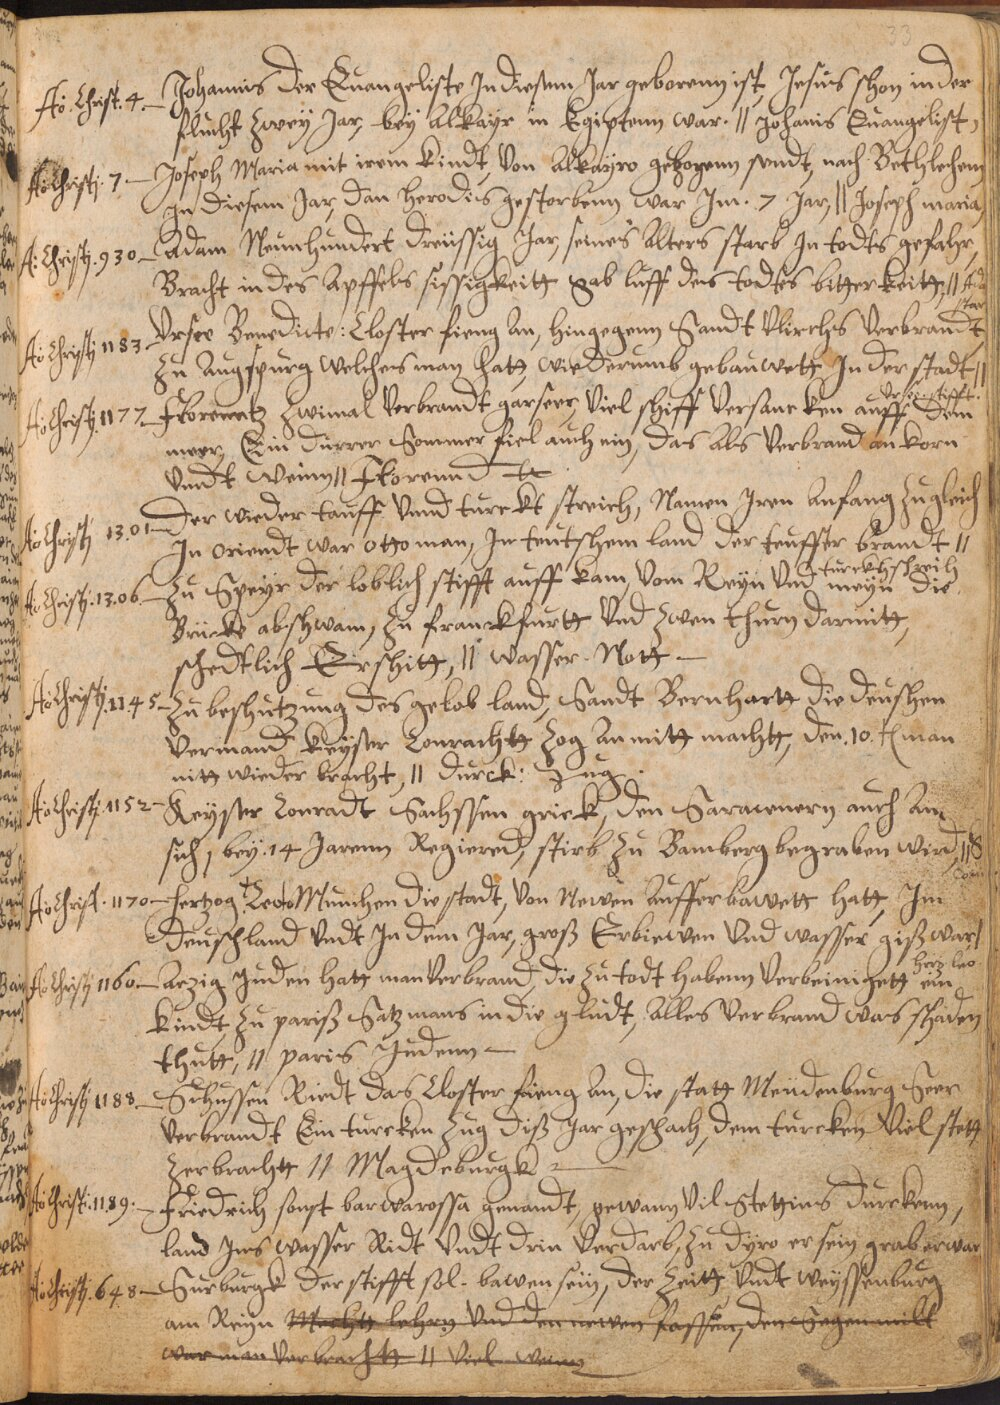 33
Aõ. Christ. 4. Johannis der Euangeliste In diesem Jar geborenn ist, Jesus schon in der
flucht zwey Jar, bey Alkayr in Egiptenn war. || Johanis Euangelist,
Aõ Christj. 7. Joseph Maria mit irem kindt, von Alkayro gezogenn sendt, nach Bethlechem
In diesem Jar, dan Herodis gestorbenn war Im. 7 Jar, || Joseph maria
A: Christj. 930. Adam Neunhundert dreissig Jar, seines Alters starb In todts gefahr,
Bracht in des Apffels sissigkeitt gab luff des todtes bitterkeitt, || Ada
star
Aõ Christj 1183 Vrsee Benedicte: Closter fieng An, hingegenn Sandt Vlrichs Verbrandt
Zu Augspurg welches man hatt, wiederumb gebauwett In der stadt ||
Vrsee stifft.
Aõ Christj. 1177. Florentz zwimal Verbrandt gar seer, Viel shiff Versancken auff dem
meer, Ein durrer Sommer fiel auch ein, das Als Verbrand an korn
Vndt Weinn || Florennd tz
Aõ Christj 1301 Der wieder tauff Vnnd turckt streich, Namen Iren Anfang zu gleich
In oriendt war ottoman, In teutschem land der teuffer brandt ||
turckhschreib
Aõ Christj. 1306. Zu Speyr der loblich stifft auff kam, Vom Reyn Vnd meyn die
Brücke abschwam, Zu franckfurtt Vnd zwen thurn darmitt,
schedtlich Erschitt, || Wasser. Nott
Aõ Christj. 1145 Zu beshutzung des gelob land, Sandt Bernhartt die deushen
Vermand Keyser Conrachtt Zog An mitt machtt, den. 10. man
nitt wieder bracht, || durck: Zug.
Aõ Christj. 1152 Keyser Conradt Sachssen grieck, den Sarawenern auch An
sich, bey. 14 Jarenn Regiered, stirb Zu Bamberg begraben wird, || K
Con
Aõ Christ. 1170. Hertzog Leo Munchen die stadt, Von Newen Aufferbawett hatt, Im
Deuschland Vndt In dem Jar, groß Erbiewen Vnd wasser giß war
hertz leo.
Aõ Christj 1160. Aczig Juden hatt man Verbrand, die Zu todt habenn Verbeinigett ein
kindt, Zu pariß Satz mans in die gludt, Alles Verbrand was schaden
thutt, || paris Judenn
Aõ Christj 1188. Schussen Riedt das Closter fieng An, die statt Meidenburg Seer
Verbrandt Ein turcken Zug diß Jar geschach, dem turcken Viel stett
Zerbrachtt || Magdeburgk
Aõ Christi. 1189. Friedrich sonst barwarossa genandt, gewann Vil Stettins durckenn,
land Ins wasser Ridt Vndt drin Verdarb, Zu dyro er sein grab erwar
Aõ Christj. 648. Surburgk der stifft sol. bawen sein, der Zeitt Vndt Weyssenburg
am Reyn Vnd den newen fassen, den Segen milt
war man Verbrachtt || Viel wein